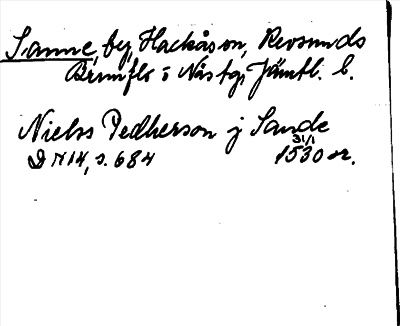 Sanne, by, Hackåson, Revsunds
Brunflo o Näs tg, Jämtl. l.
Nielss Pedherson j Sande
DN 14, s. 684 31/1 1530 or.